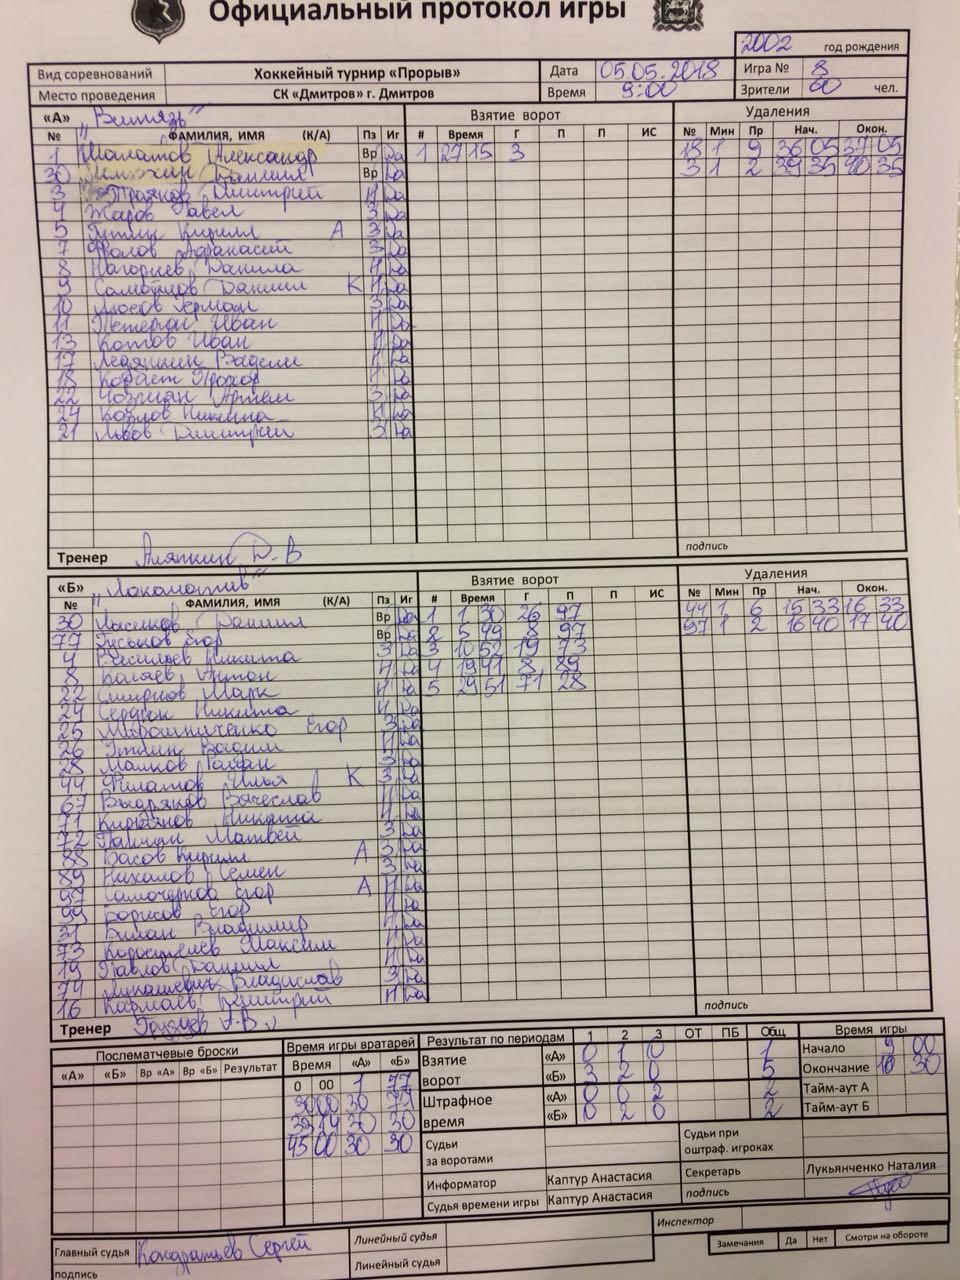 Официальный протокол игры
2002 год рождения
Вид соревнований Хоккейный турнир «Прорыв» Дата 05.05.2018 Игра № 8
Место проведения СК «Дмитров» г. Дмитров Время 9:00 Зрители 60 чел.
«А» "Витязь" Взятие ворот Удаления
№ ФАМИЛИЯ, ИМЯ (К/А) Пз Иг # Время Г П П ИС № Мин Пр Нач. Окон.
1 Шалатов Александр Вр Да 1 27 15 3 18 1 9 36 05 37 05
30 Даниил Вр Да 3 1 2 39 35 40 35
3 Дмитрий Н Да
4 Жаров Павел З Да
5 Гуткин Кирилл А З Да
7 Фролов Афанасий З Да
8 Нагорнев Данила Н Да
9 Самойлов Даниил К Н Да
10 Аносов Герман З Да
11 Петеран Иван Н Да
13 Котов Иван Н Да
17 Ледяикин Вадим Н Да
18 Прохор Н Да
22 Артём З Да
24 Козлов Никита Н Да
21 Львов Дмитрий З Да
Тренер Аляпкин Д. В
подпись
«Б» "Локомотив" Взятие ворот Удаления
№ ФАМИЛИЯ, ИМЯ (К/А) Пз Иг # Время Г П П ИС № Мин Пр Нач. Окон.
30 Лысенков Даниил Вр Да 1 1 30 26 97 44 1 6 15 33 16 33
77 Гуськов Егор Вр Да 2 5 49 8 97 97 1 2 16 40 17 40
4 Васильев Никита З Да 3 10 52 19 73
8 Каляев Антон Н Да 4 19 41 8 89
22 Смирнов Марк Н Да 5 29 51 71 28
24 Сердюк Никита Н Да
25 Мирошниченко Егор З Да
26 Уткин Вадим Н Да
28 Малков Роман З Да
44 Филатов Илья К З Да
67 Выдряков Вячеслав Н Да
71 Кирьянов Никита Н Да
72 Паичук Матвей З Да
88 Басов Кирилл А З Да
89 Накалов Семен З Да
97 Самочернов Егор А Н Да
99 Борисов Егор Н Да
31 Билан Владимир Н Да
73 Коростелев Максим Н Да
19 Павлов Даниил Н Да
74 Лукашевич Владислав З Да
16 Кармаев Дмитрий Н Да
Тренер А.В.
подпись
Послематчевые броски Время игры вратарей Результат по периодам 1 2 3 ОТ ПБ Общ. Время игры
«А» «Б» Вр «А» Вр «Б» Результат Время «А» «Б» Взятие ворот «А» 0 1 0 1 Начало 9 00
0 00 1 77 «Б» 3 2 0 5 Окончание 10 30
30 00 30 77 Штрафное время «А» 0 0 2 2 Тайм-аут А
30 30 «Б» 0 2 0 2 Тайм-аут Б
45 00 30 30 Судьи за воротами Судьи при оштраф. игроках
Информатор Каптур Анастасия Секретарь Лукьянченко Наталия
Судья времени игры Каптур Анастасия подпись
Инспектор
Главный судья Кондратьев Сергей Линейный судья Замечания Да Нет Смотри на обороте
подпись Линейный судья